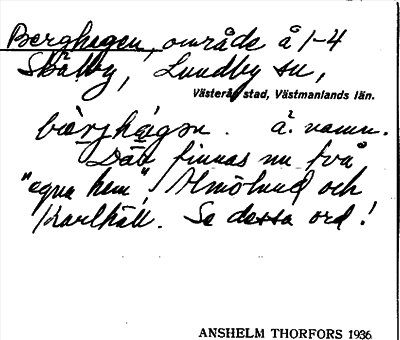 Berghagen, område å 1-4
Skälby, Lundby sn,
Västerås stad, Västmanlands län.
bæ̀rjhágən. ä. namn.
Där finnas nu två
"egna hem", Almölund och
Karlhäll. Se dessa ord!
ANSHELM THORFORS 1936